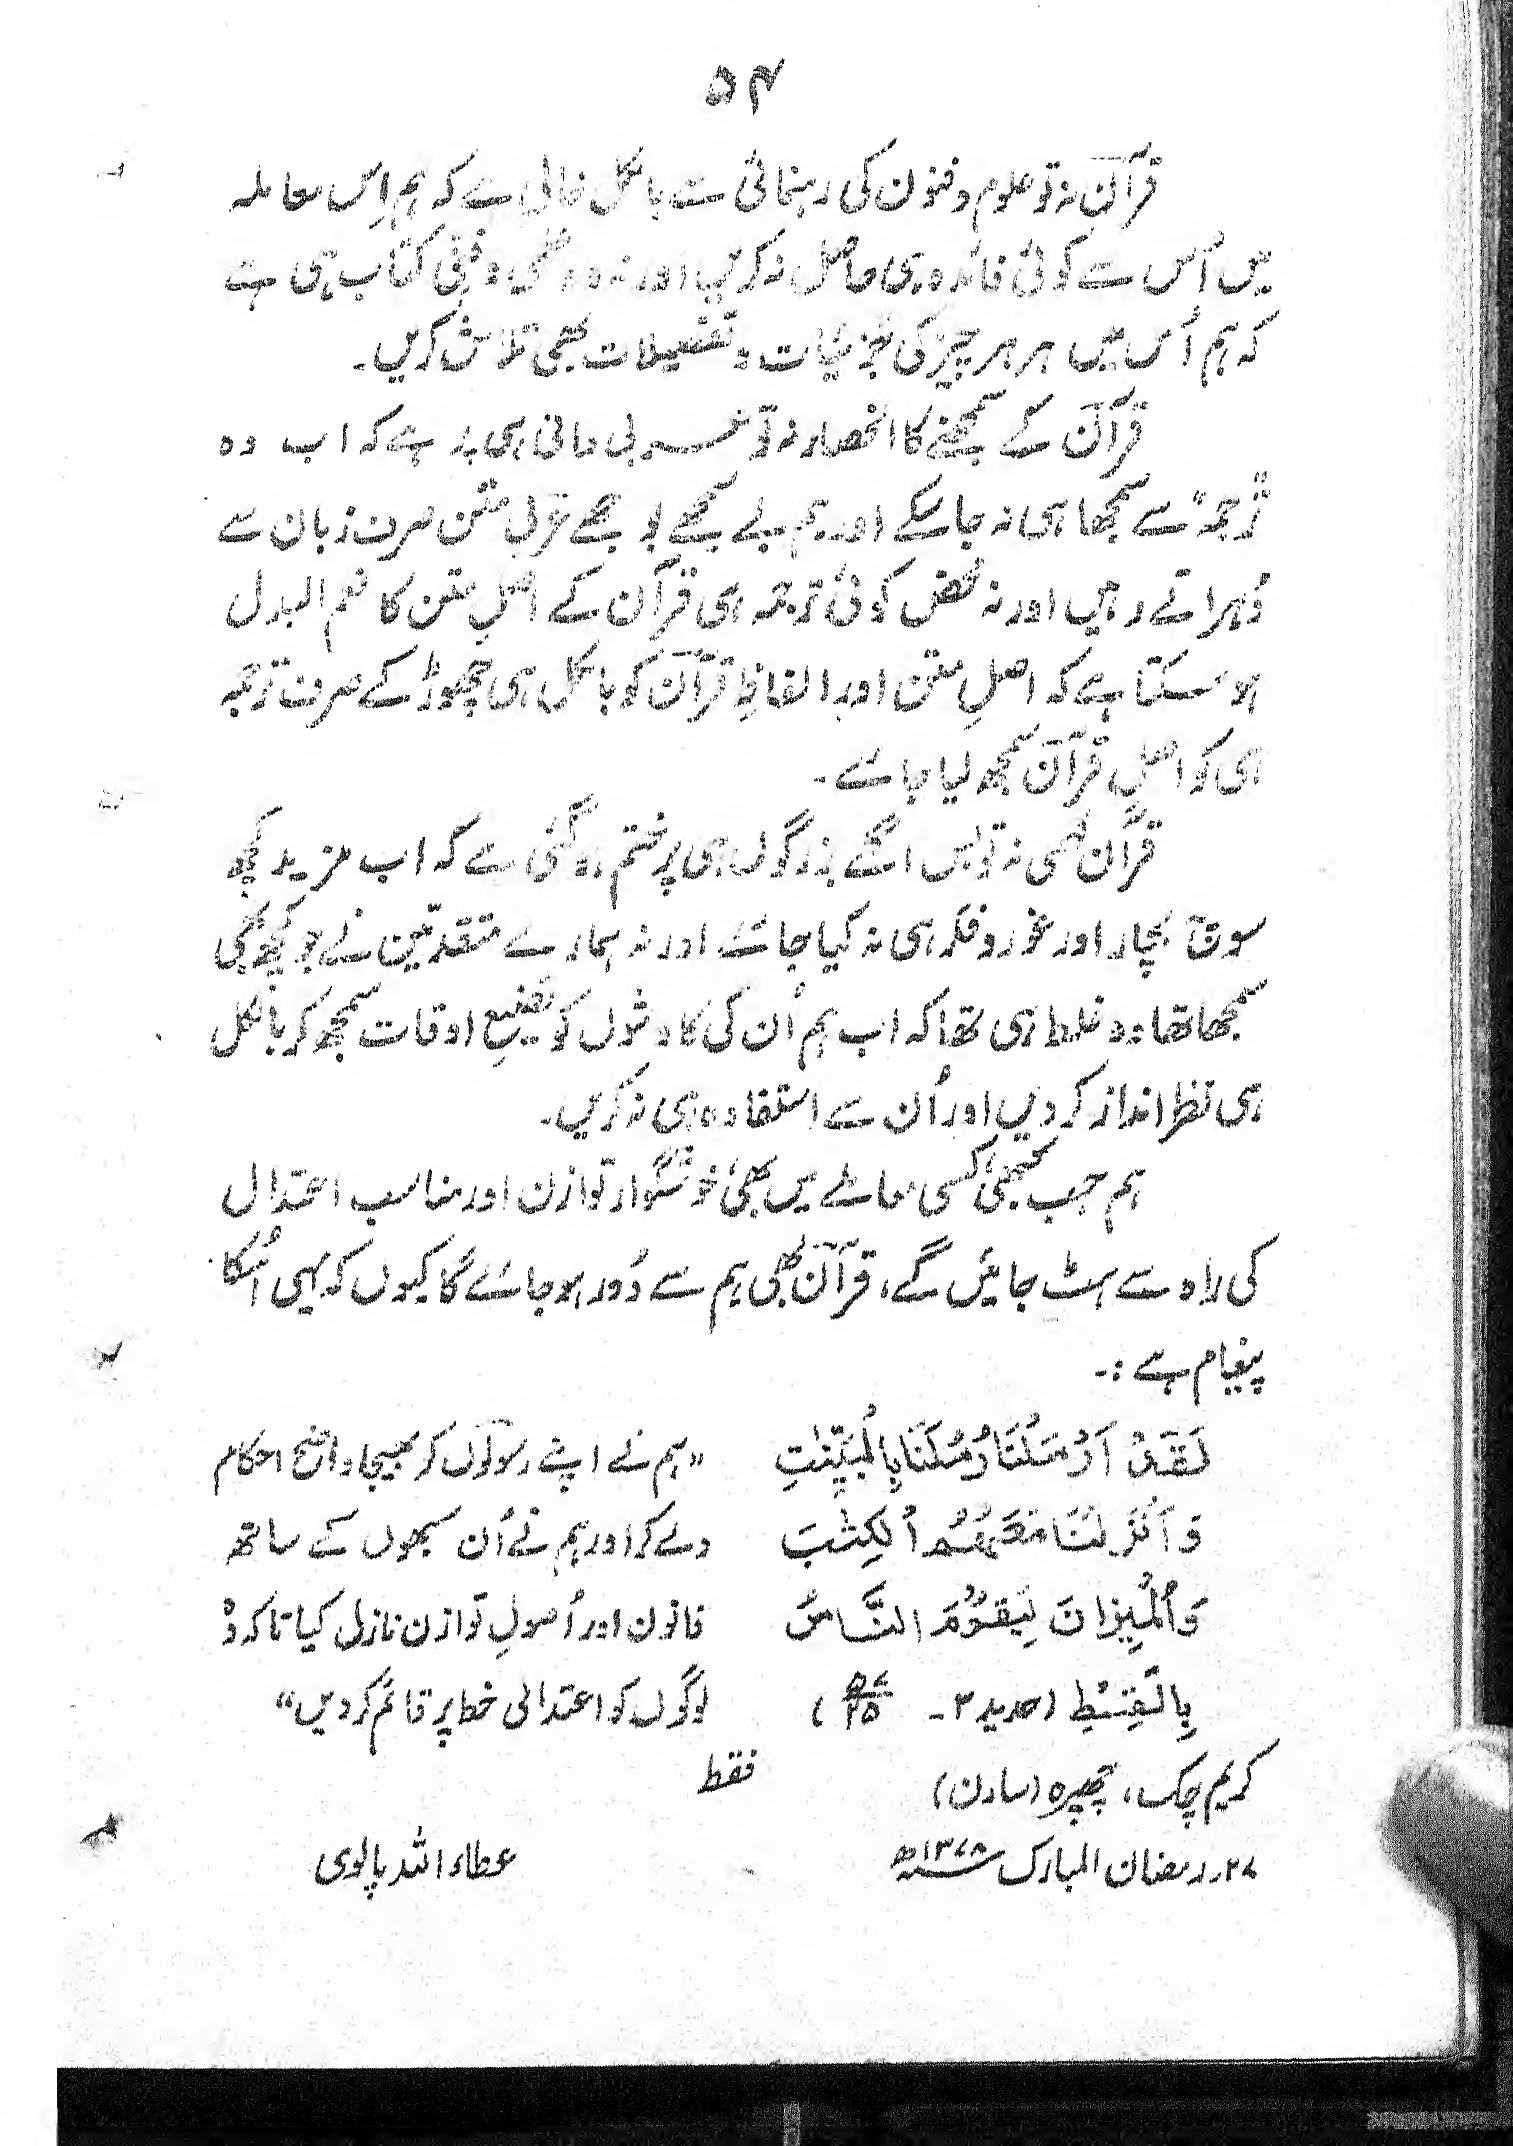 ۵۴
قرآن نہ تو علوم و فنون کی رہنمائی سے بالکل خالی ہے کہ ہم اِس معاملہ
میں اُس سے کوئی فائدہ ہی حاصل نہ کریں اور نہ وہ علمی و فنی کتاب ہی ہے
کہ ہم اُس میں ہر ہر چیز کی جزئیات و تفصیلات بھی تلاش کریں۔
قرآن کے سمجھنے کا انحصار نہ تو عربی دانی ہی پر ہے کہ اب وہ
ترجمہ سے سمجھا ہی نہ جا سکے اور ہم بے سمجھے بوجھے عربی متن صرف زبان سے
دُہراتے رہیں اور نہ محض کوئی ترجمہ ہی قرآن کے اصلِ متن کا نعم البدل
ہو سکتا ہے کہ اصلِ متن اور الفاظِ قرآن کو بالکل ہی چھوڑ کے صرف ترجمہ
ہی کو اصلِ قرآن سمجھ لیا جائے۔
قرآن فہمی نہ تو بس اگلے بزرگوں ہی پر ختم ہو گئی ہے کہ اب مزید کچھ
سوچ بچار اور غور و فکر ہی نہ کیا جائے اور نہ ہمارے متقدمین نے جو کچھ بھی
سمجھا تھا وہ غلط ہی تھا کہ اب ہم اُن کی کاوشوں کو تضیعِ اوقات سمجھ کر بالکل
ہی نظر انداز کر دیں اور اُن سے استفادہ ہی نہ کریں۔
ہم جب کبھی کسی معاملے میں بھی خوشگوار توازن اور مناسب اعتدال
کی راہ سے ہٹ جائیں گے، قرآن بھی ہم سے دُور ہو جائے گا کیوں کہ یہی اُسکا
پیغام ہے :۔
لَقَدْ اَرْسَلْنَا رُسُلَنَا بِالْبَيِّنٰتِ
وَ اَنْزَلْنَا مَعَهُمُ الْكِتٰبَ
وَ الْمِيْزَانَ لِيَقُوْمَ النَّاسُ
بِالْقِسْطِ (حدید ۳۔ ۵۷/۲۵)
"ہم نے اپنے رسولوں کو بھیجا واضح احکام
دے کر اور ہم نے اُن سبھوں کے ساتھ
قانون اور اُصولِ توازن نازل کیا تاکہ وہ
لوگوں کو اعتدالی خط پر قائم کر دیں"
فقط
کریم چک، چھپرہ (سارن)
۲۷ر رمضان المبارک ۱۳۷۸ھ
عطاء اللہ پالوی